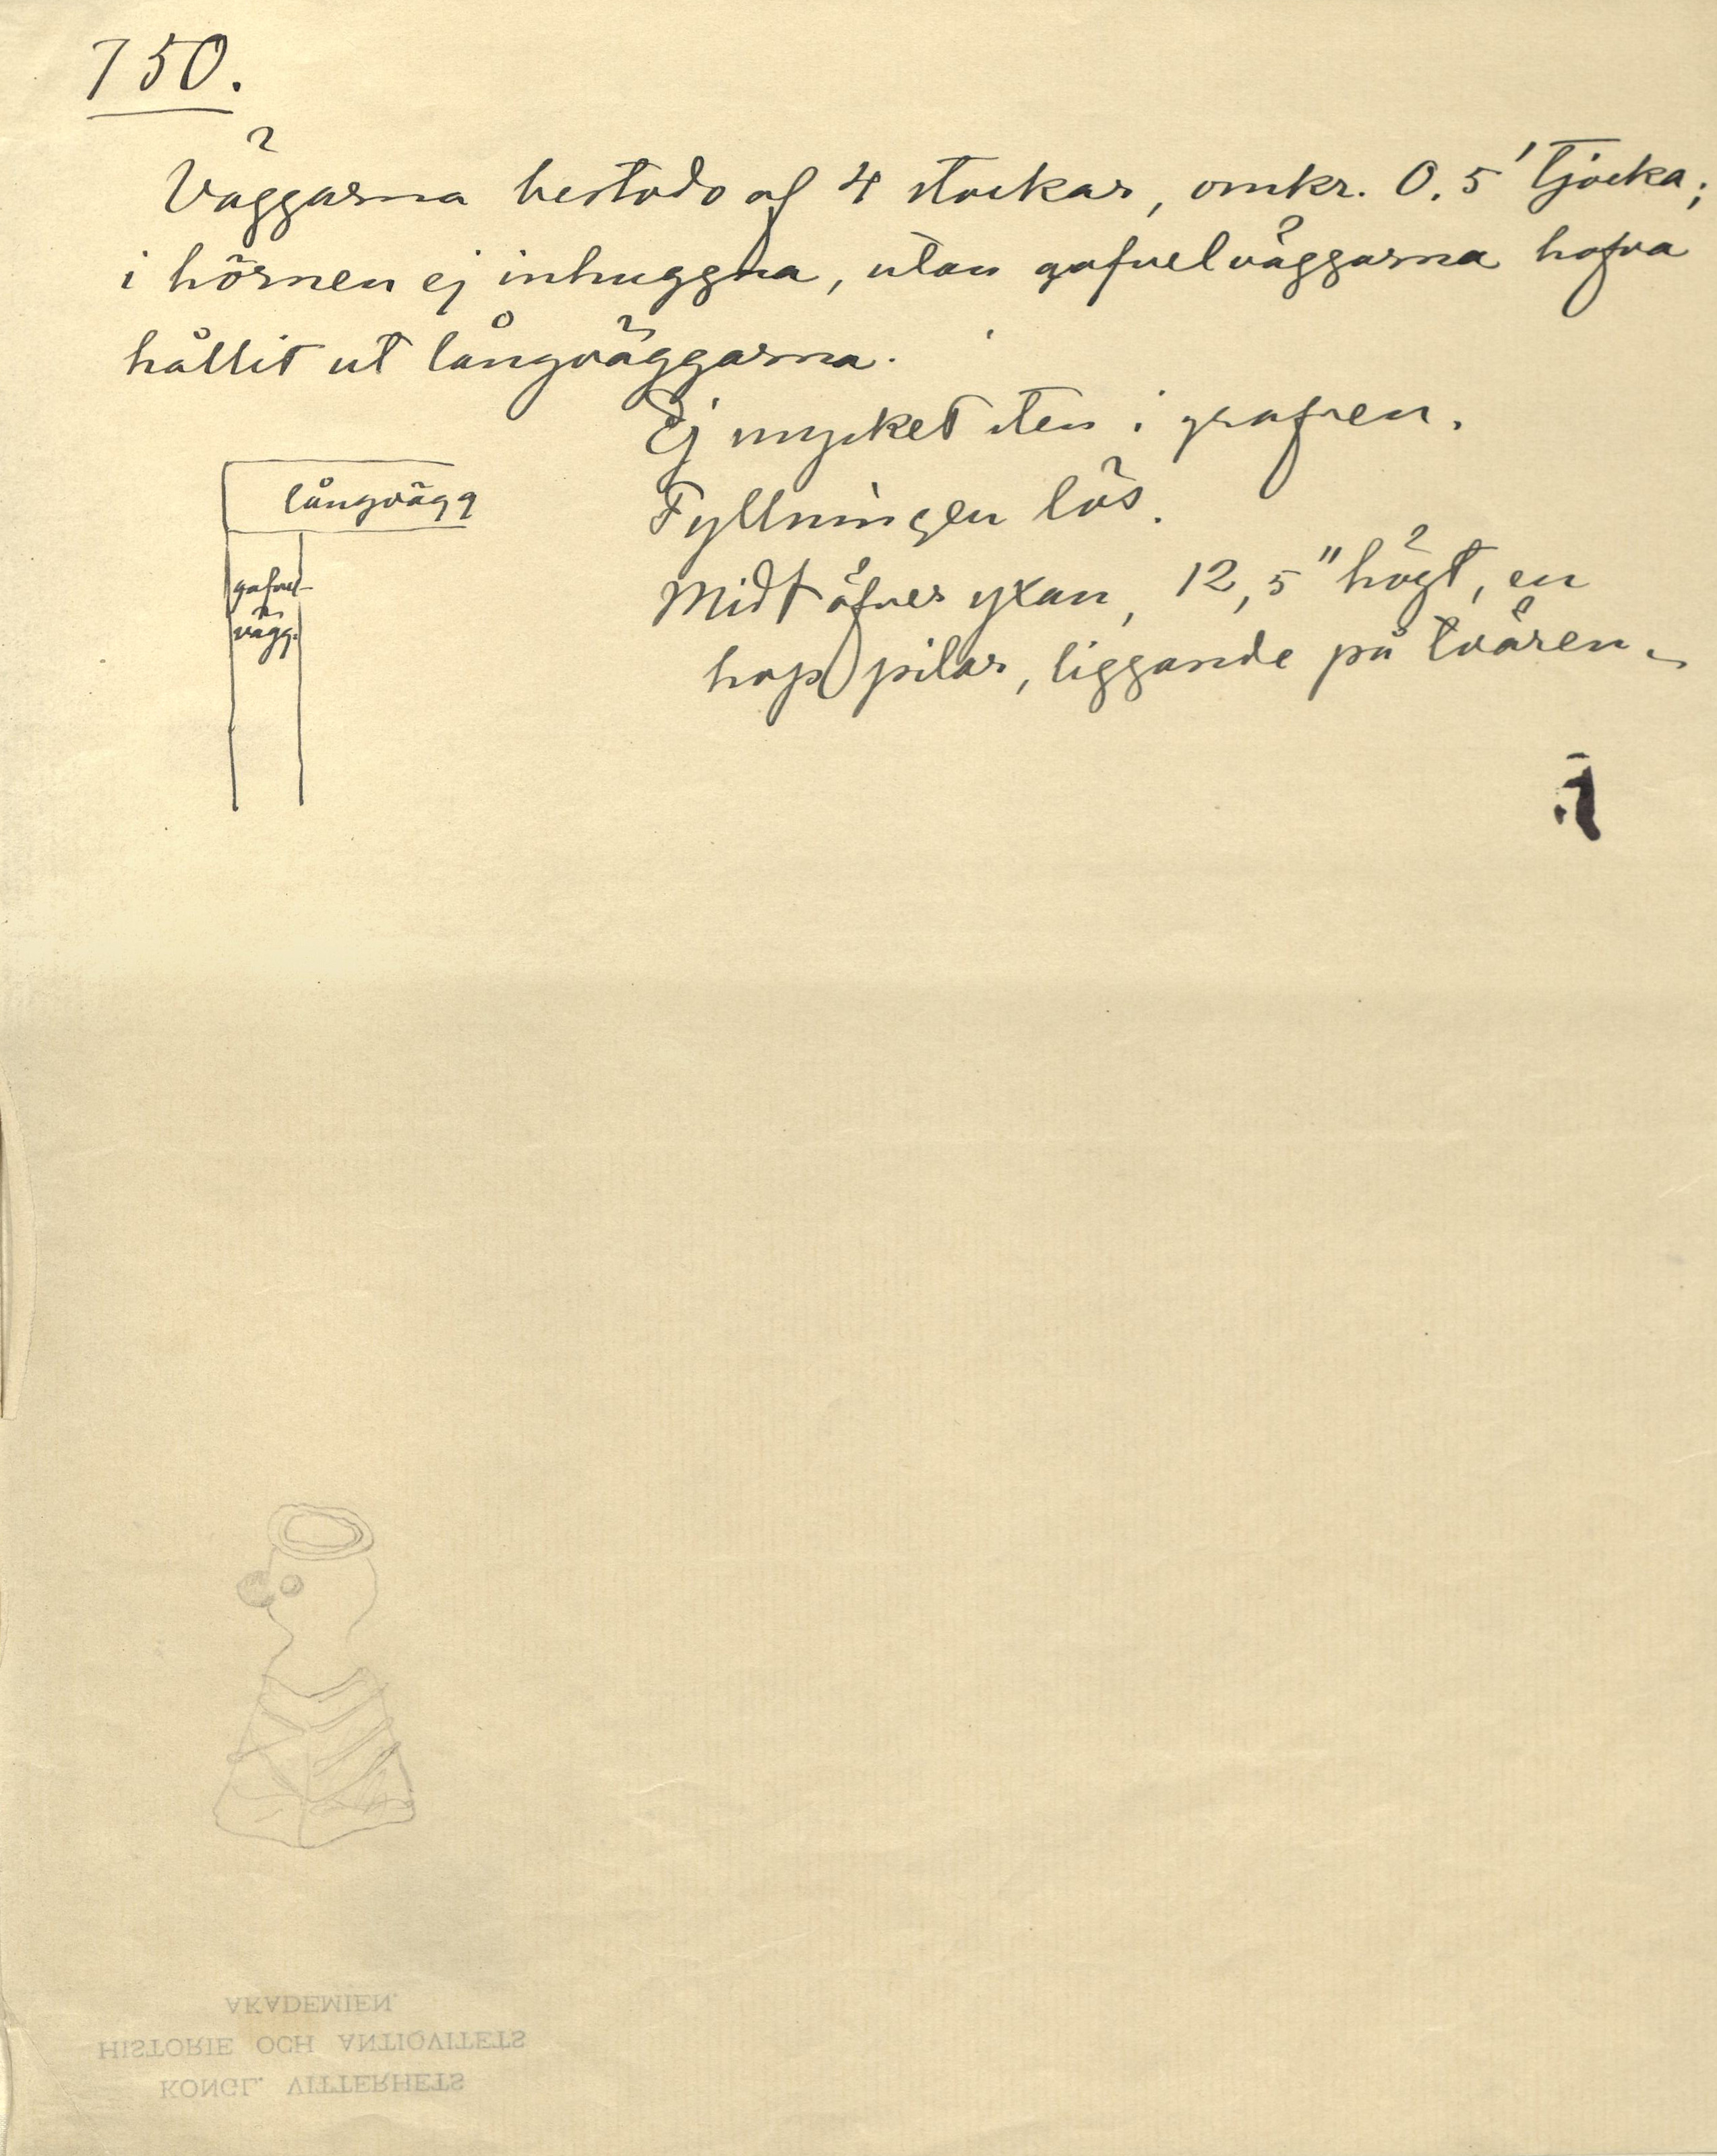 750.
Väggarna bestodo af 4 stockar, omkr. 0.5' tjocka;
i hörnen ej inhuggna, utan gafvelväggarna hafva
hållit ut långväggarna.
Ej mycket sten i grafven.
Fyllningen lös.
Midt öfver yxan, 12,5" högt, en
hop pilar, liggande på tvären.
långvägg
gafvel-
vägg.
AKADEMIEN.
HISTORIE OCH ANTIQVITETS
KONGL. VITTERHETS